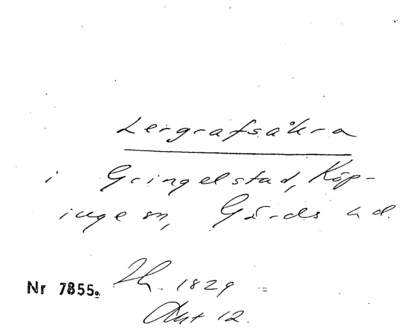 Lergrafsåkra
i Gringelstad, Köp-
inge sn, Gärds hd.
Nr 7855. Th. 1829
Akt 12.